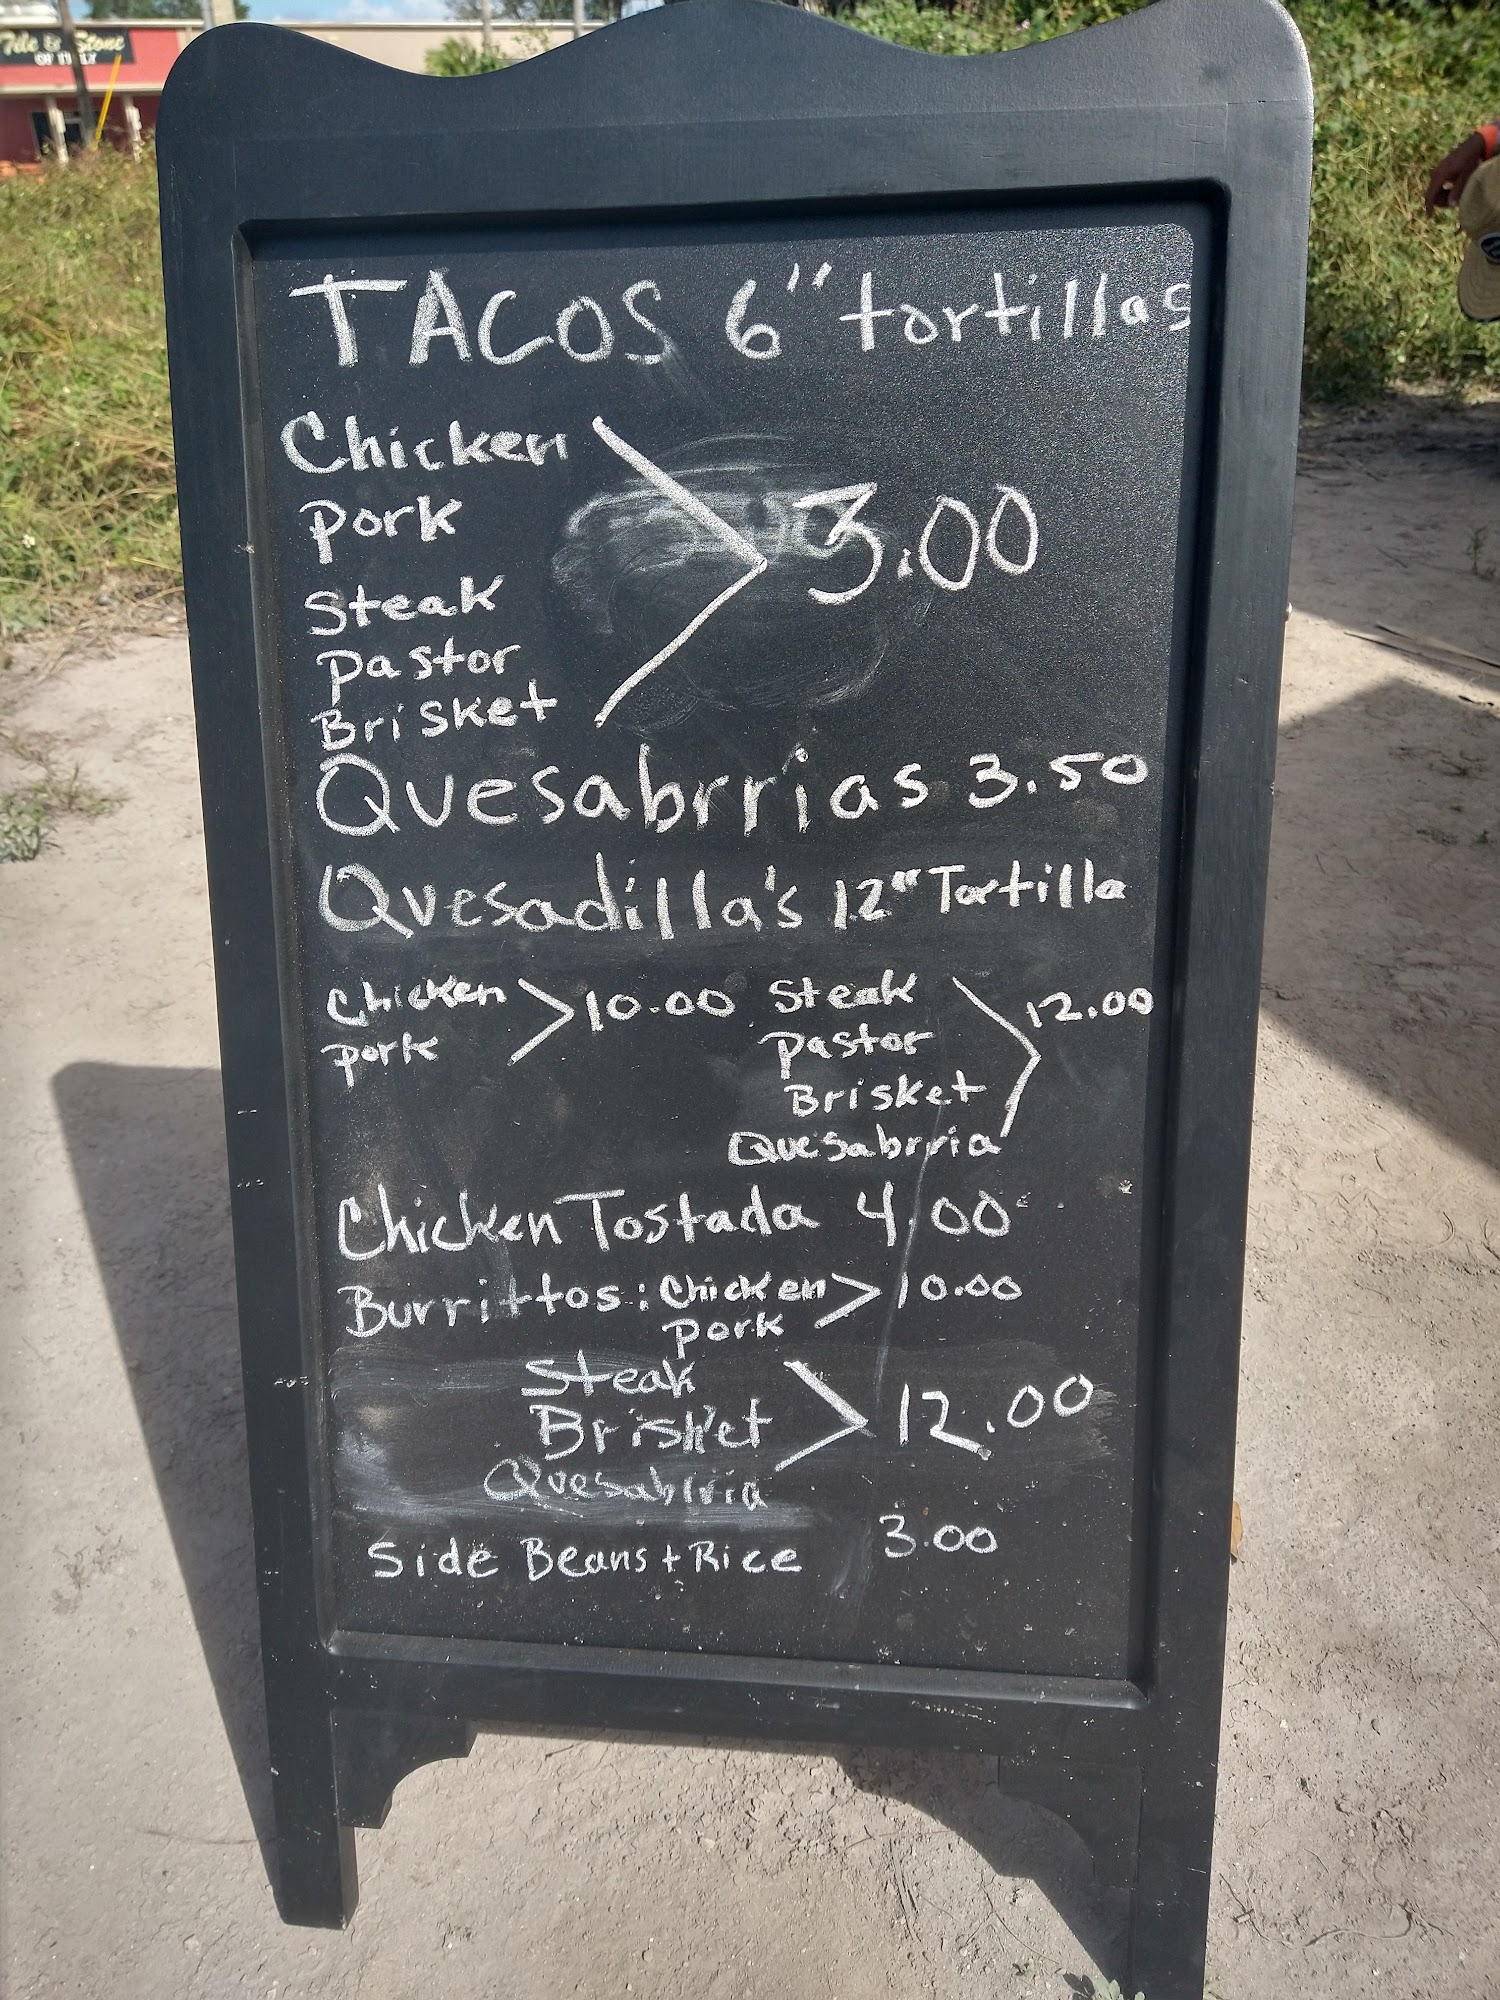 Tile & Stone
OF ITALY
TACOS 6" tortillas
Chicken
Pork
Steak
Pastor
Brisket
3.00
Quesabrrias 3.50
Quesadilla's 12" Tortilla
Chicken
Pork
10.00
Steak
Pastor
Brisket
Quesabrria
12.00
Chicken Tostada 4.00
Burrittos: Chicken
Pork
10.00
Steak
Brisket
Quesabrria
12.00
Side Beans + Rice 3.00